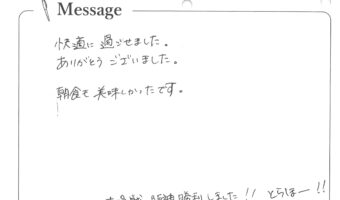 Message
快適に過ごせました。
ありがとうございました。
朝食も美味しかったです。
勝利しました!! とらほー!!